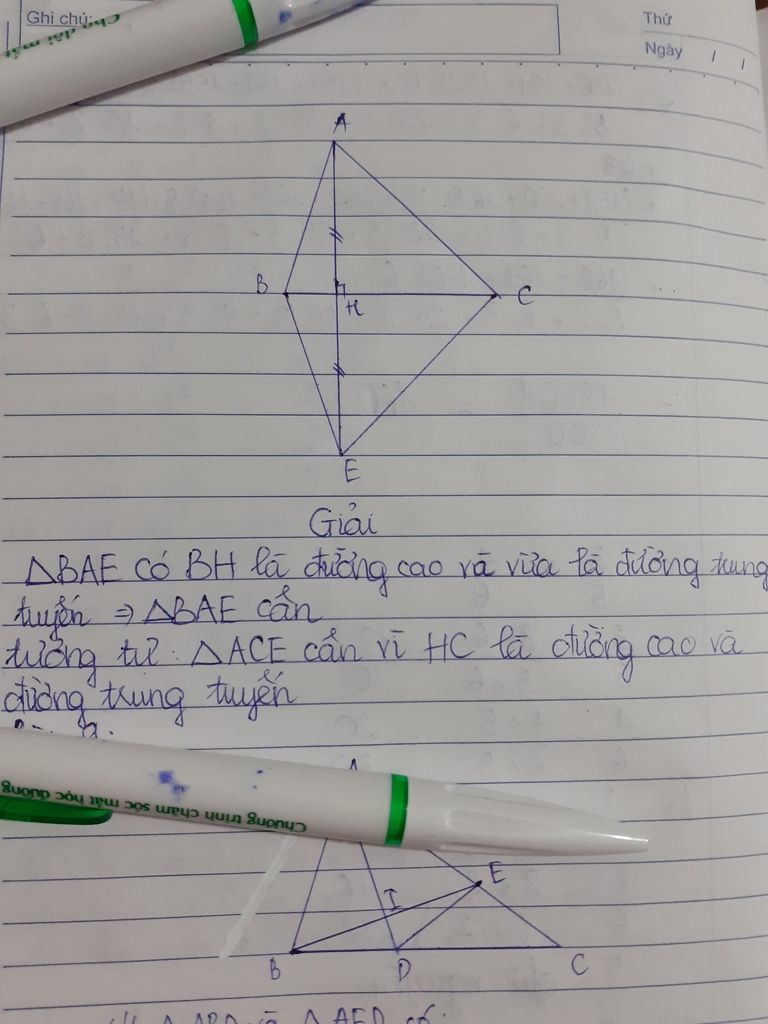 Ghi chú:
Thứ
Ngày / /
A
B
H
C
E
Giải
△BAE có BH là đường cao và vừa là đường trung
tuyến ⇒ △BAE cân
tương tự: △ACE cân vì HC là đường cao và
đường trung tuyến
Chương trình chăm sóc mắt học đường
A
E
I
B D C
△ABD và △AED có